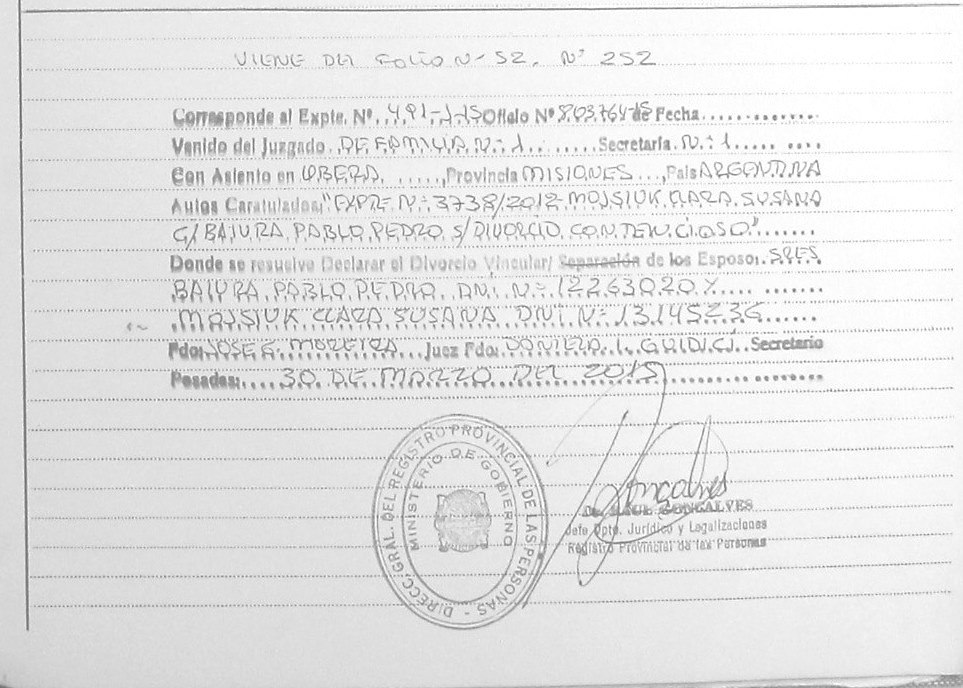 VIENE DEL FOLIO N- 52. Nº 252
Corresponde al Expte. Nº. 491-J-15 Oficio Nº 803.764-15 de Fecha..............
Venido del Juzgado. DE FAMILIA. N.: 1 ........, Secretaría. N.: 1 ..... ....
Con Asiento en OBERA. ......, Provincia MISIONES ..., País ARGENTINA
Autos Caratulados, "EXPTE. N.: 3738/2012. MOJSIUK. CLARA. SUSANA
C/ BAIURA. PABLO. PEDRO. S/ DIVORCIO. CONTENCIOSO."......
Donde se resuelve Declarar el Divorcio Vincular/ Separación de los Esposo: SRES
BAIURA. PABLO. PEDRO. DNI. N.: 12263020. Y. .... .......
MOJSIUK CLARA SUSANA DNI. N.: 13145236......
Fdo: JOSE G. MOREIRA... Juez Fdo: DANIELA. I. GUIDICI. Secretario
Posadas:.... 30. DE. MARZO. DEL. 2015 ...................
DIRECC. GRAL. DEL REGISTRO PROVINCIAL DE LAS PERSONAS -
MINISTERIO DE GOBIERNO
Goncalves
Dr. RAUL GONCALVES
Jefe Dpto. Jurídico y Legalizaciones
Registro Provincial de las Personas